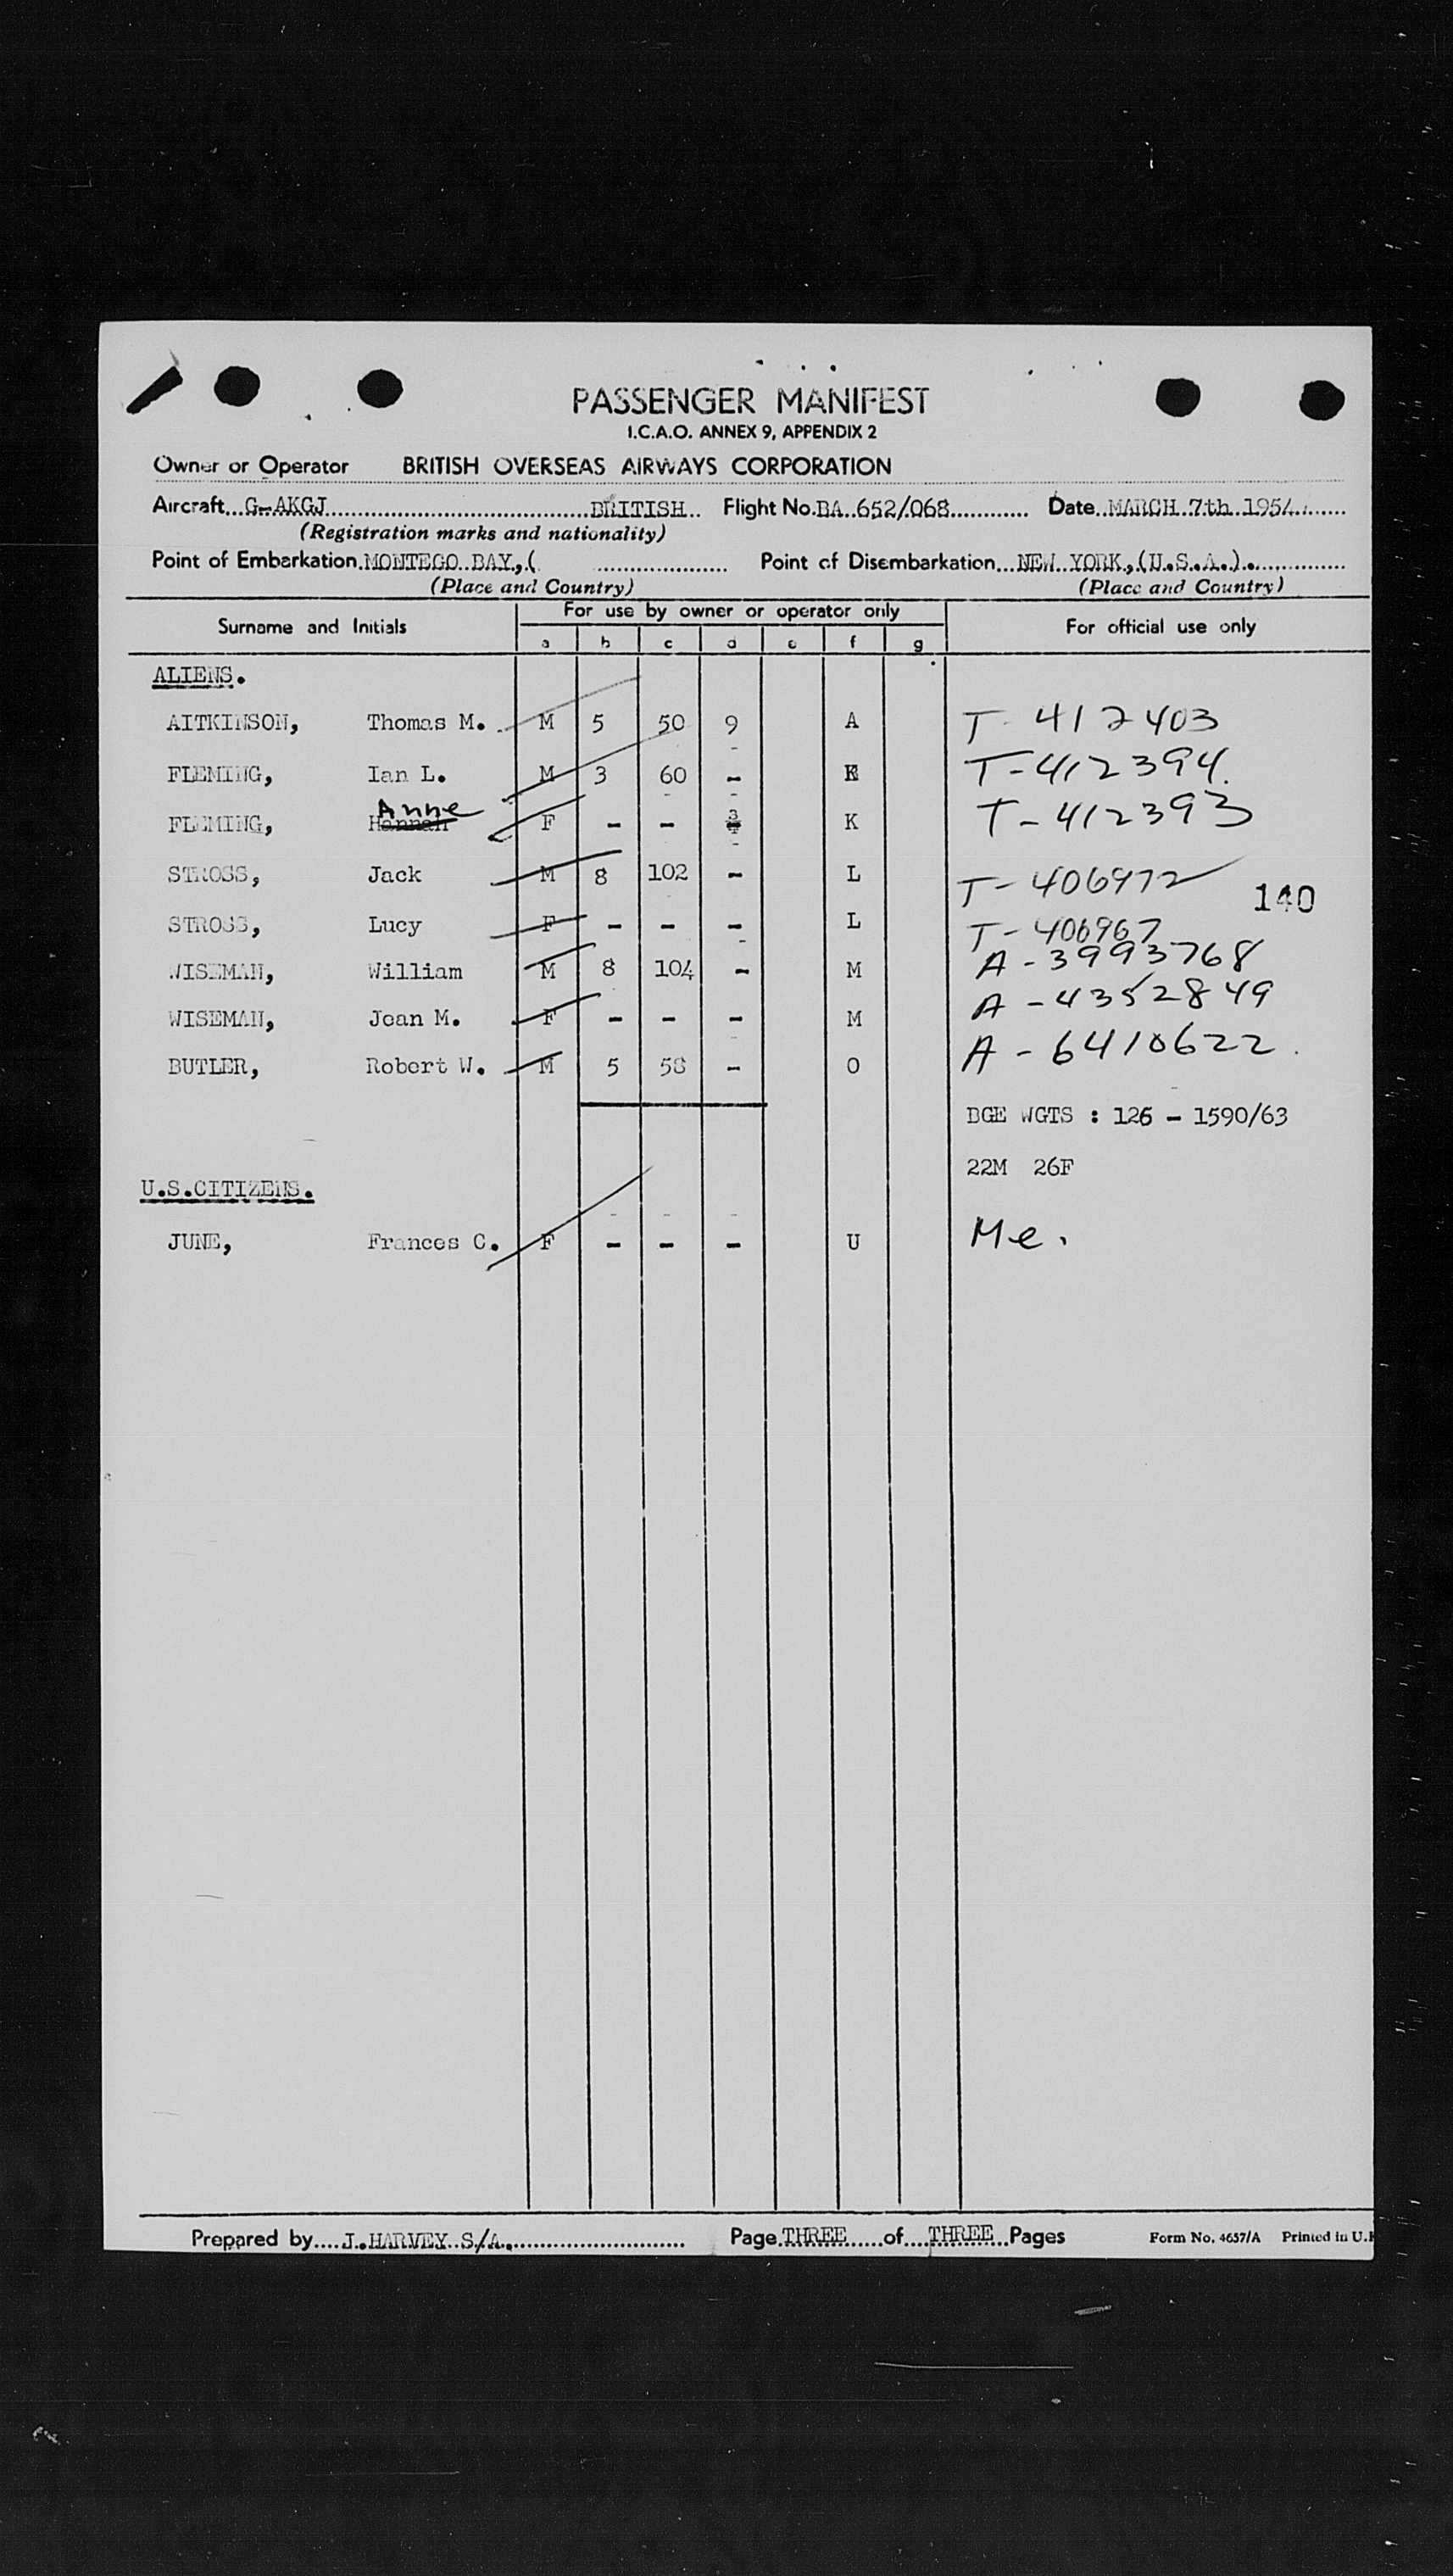 PASSENGER MANIFEST
I.C.A.O. ANNEX 9, APPENDIX 2
Owner or Operator BRITISH OVERSEAS AIRWAYS CORPORATION
Aircraft...G-AKGJ...BRITISH.. Flight No.BA..652/068... Date..MARCH..7th..1954...
(Registration marks and nationality)
Point of Embarkation.MONTEGO..BAY.,( ... Point of Disembarkation...NEW..YORK.,(U.S.A.)...
(Place and Country) (Place and Country)
Surname and Initials For use by owner or operator only For official use only
a b c d e f g
ALIENS.
AITKINSON, Thomas M. M 5 50 9 A T-412403
FLEMING, Ian L. M 3 60 - K T-412394.
Anne
FLEMING, Hannah F - - 3 K T-412393
STROSS, Jack M 8 102 - L T-406972
140
STROSS, Lucy F - - - L T-406967
WISEMAN, William M 8 104 - M A-3993768
WISEMAN, Joan M. F - - - M A-4352849
BUTLER, Robert W. M 5 58 - O A-6410622.
BGE WGTS : 126 - 1590/63
22M 26F
U.S.CITIZENS.
JUNE, Frances C. F - - - U Me.
Prepared by....J.HARVEY..S/A.... Page.THREE...of...THREE...Pages Form No. 4657/A Printed in U.K